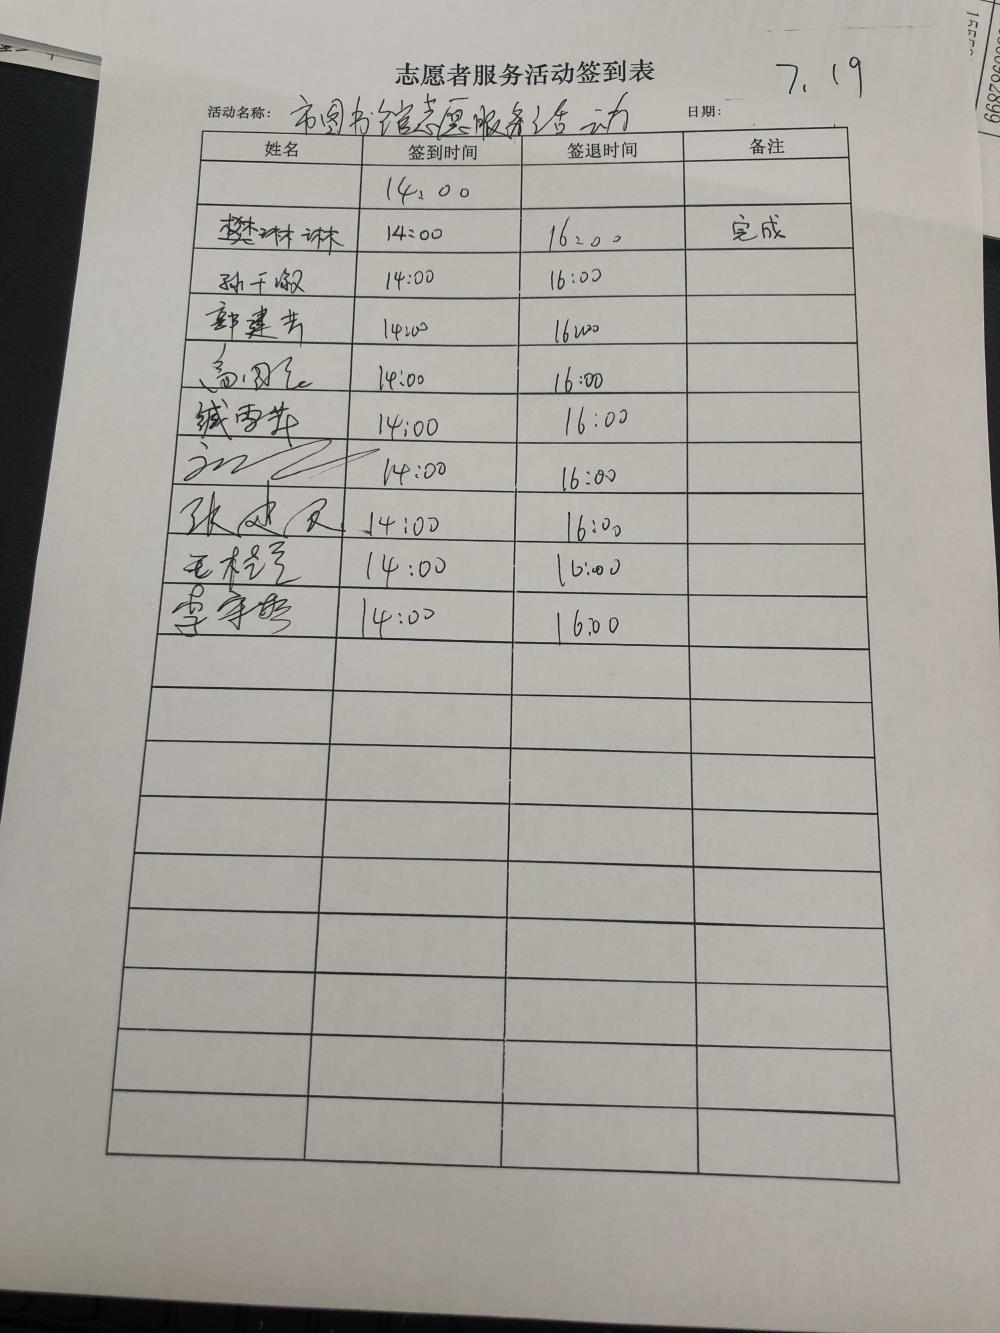 志愿者服务活动签到表
7.19
活动名称: 市图书馆志愿服务活动 日期:
姓名 签到时间 签退时间 备注
14:00
樊琳琳 14:00 16:00 完成
孙千淑 14:00 16:00
郭建芳 14:00 16:00
高国 14:00 16:00
臧雪苹 14:00 16:00
14:00 16:00
张建民 14:00 16:00
王桂芝 14:00 16:00
李 14:00 16:00